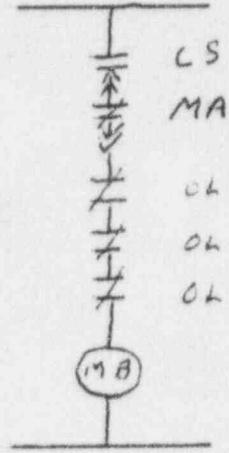 CS
MA
OL
OL
OL
MB